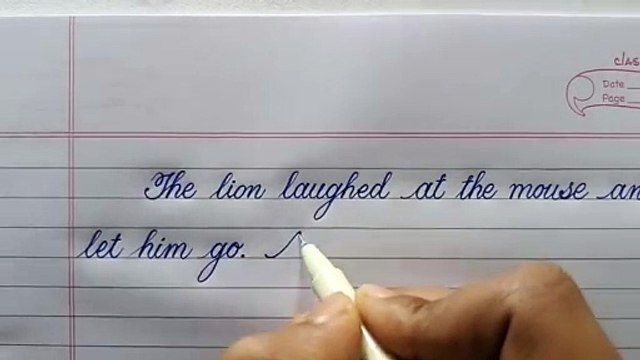 Clas
Date
Page
The lion laughed at the mouse an
let him go.